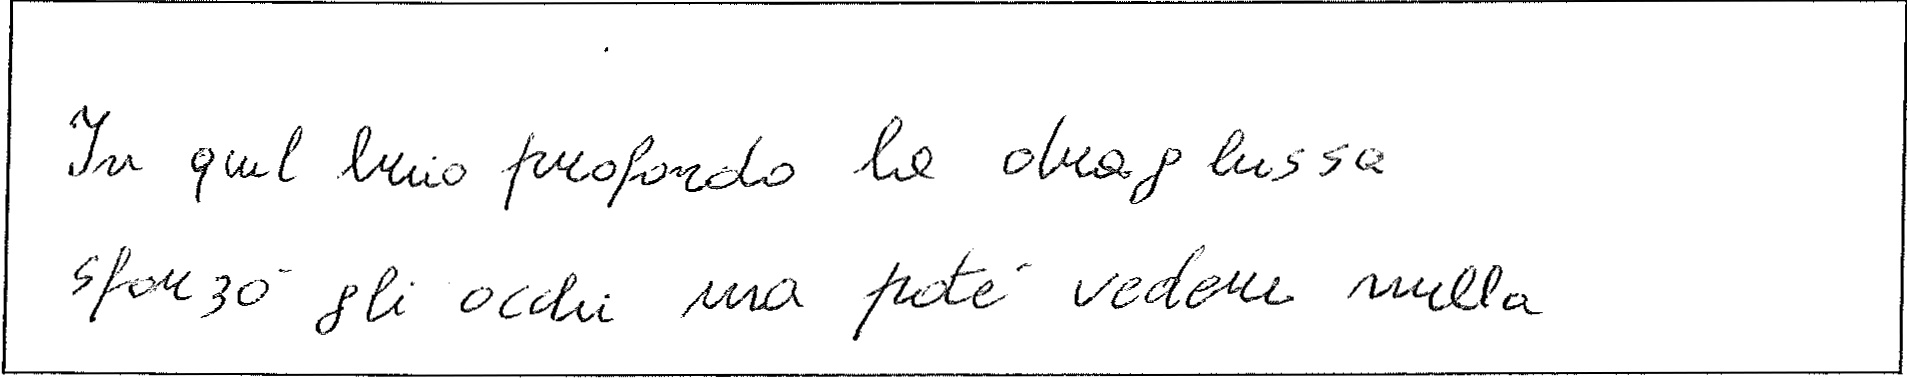 In quel buio profondo la draghessa
sforzò gli occhi ma poté vedere nulla